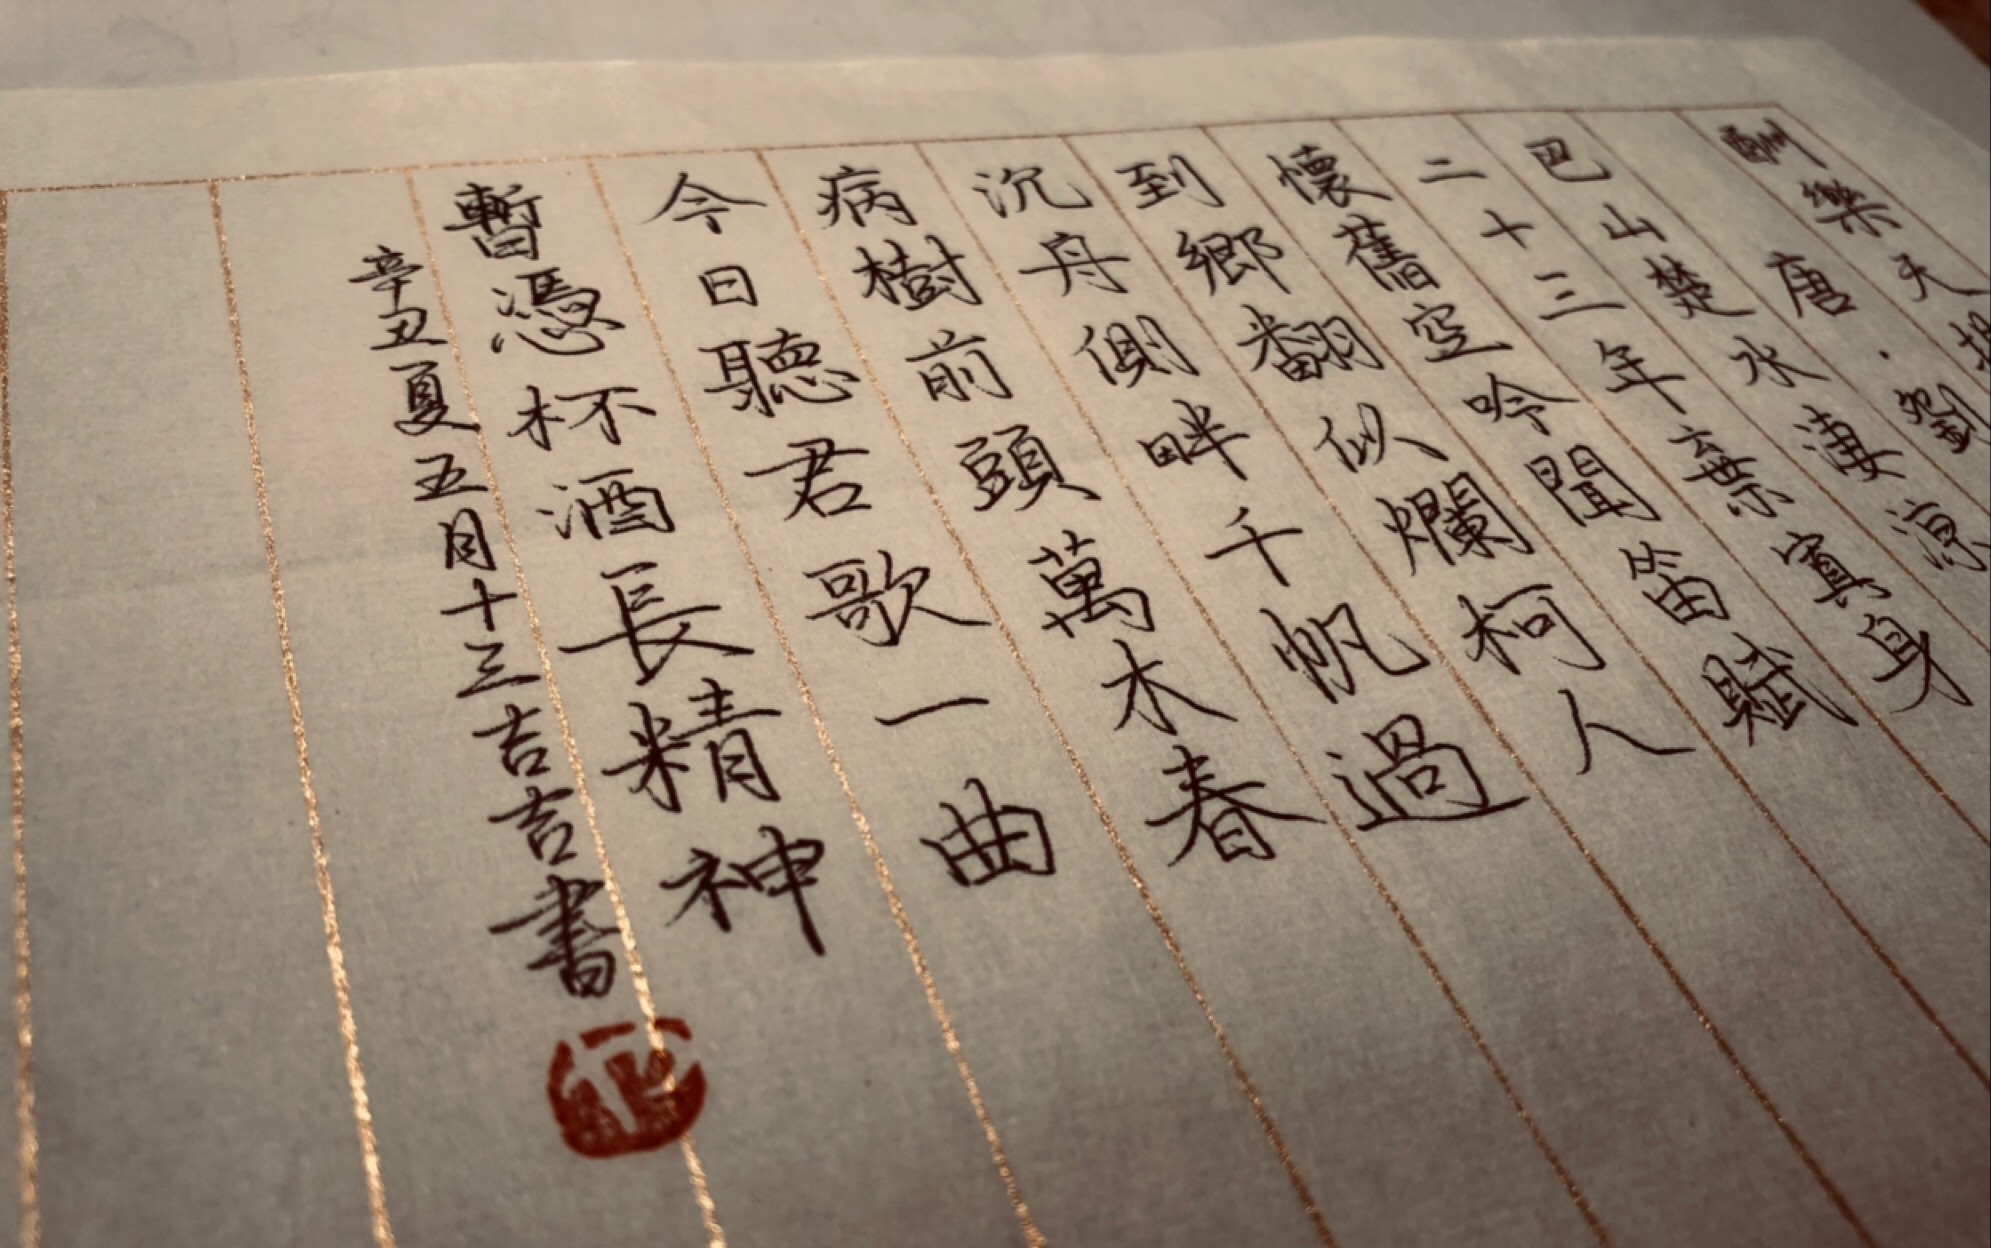 酬樂天
唐·劉
巴山楚水淒涼
二十三年棄寘身
懷舊空吟聞笛賦
到鄉翻似爛柯人
沉舟側畔千帆過
病樹前頭萬木春
今日聽君歌一曲
暫憑杯酒長精神
辛丑夏五月十三吉吉書